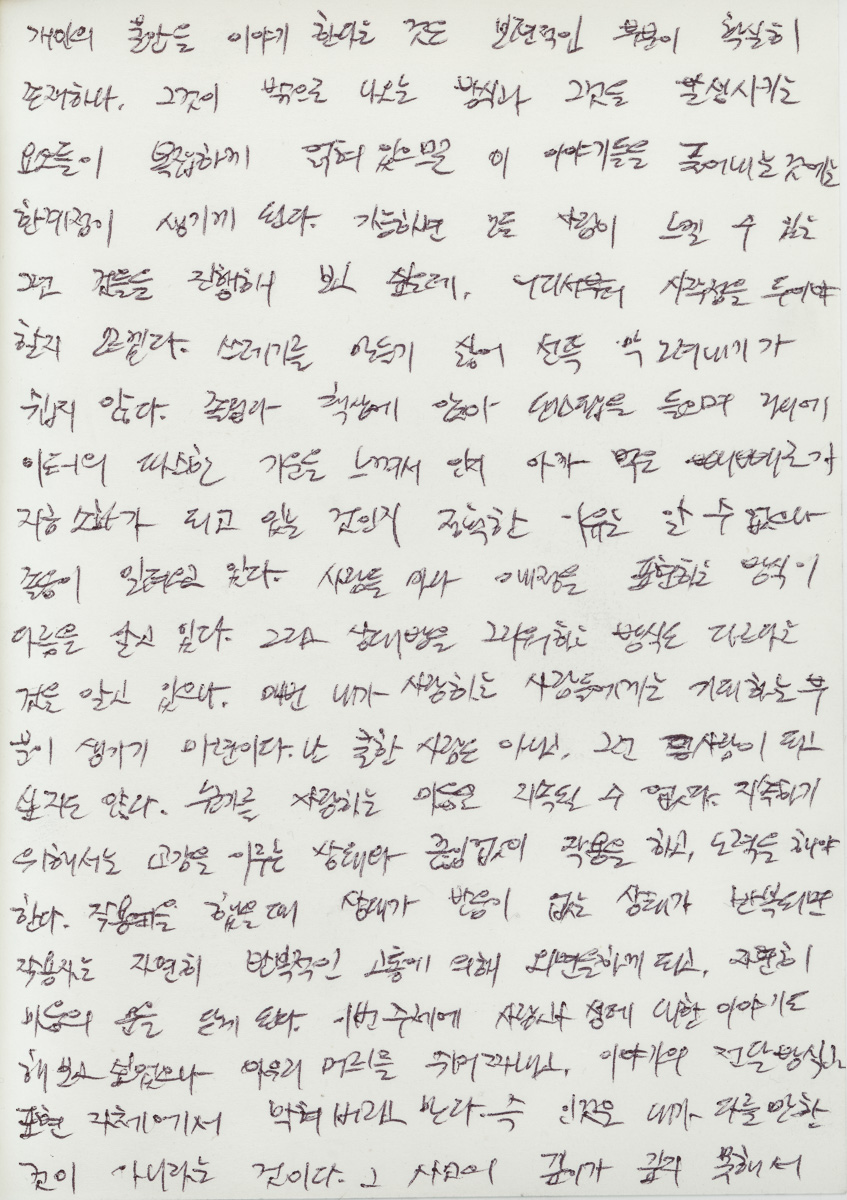 개인의 불만을 이야기 한다는 것도 보편적인 부분이 확실히
존재하나, 그것이 밖으로 나오는 방식과 그것을 발생시키는
요소들이 복잡하게 얽혀 있으므로 이 이야기들을 풀어내는 것에는
한계점이 생기게 된다. 가능하면 모든 사람이 느낄 수 있는
그런 것들을 진행해서 보고 싶은데, 어디서부터 시작점을 두어야
할지 모르겠다. 쓰레기를 만들기 싫어 선뜻 막 그려내기가
쉽지 않다. 졸립다 책상에 앉아 댄스팝을 들으며 라디에
이터의 따스한 기운을 느껴서 인지 아까 먹은 빼빼로가
지금 소화가 되고 있는 것인지 정확한 이유는 알 수 없으나
졸음이 밀려오고 있다. 사람들 마다 애정을 표현하는 방식이
다름을 알고 있다. 그리고 상대방을 그리워하는 방식도 다르다는
것을 알고 있으나, 매번 내가 사랑하는 사람들에게는 기대하는 부
분이 생기기 마련이다. 난 쿨한 사람도 아니고, 그런 사람이 되고
싶지도 않다. 누군가를 사랑하는 마음은 지속될 수 없다. 지속하기
위해서는 교감을 이루는 상태와 끊임없이 작용을 하고, 노력을 해야
한다. 작용을 했을 때 상대가 반응이 없는 상태가 반복되면
작용자는 자연히 반복적인 고통에 의해 외면을 하게 되고, 자연히
마음의 문을 닫게 된다. 이번 주제에 사랑이나 성에 대한 이야기도
해 보고 싶었으나 아무리 머리를 쥐어 짜내도, 이야기의 전달 방식과
표현 자체에서 막혀 버리고 만다. 즉 이것은 내가 다룰 만한
것이 아니라는 것이다. 그 사고의 깊이가 깊지 못해서